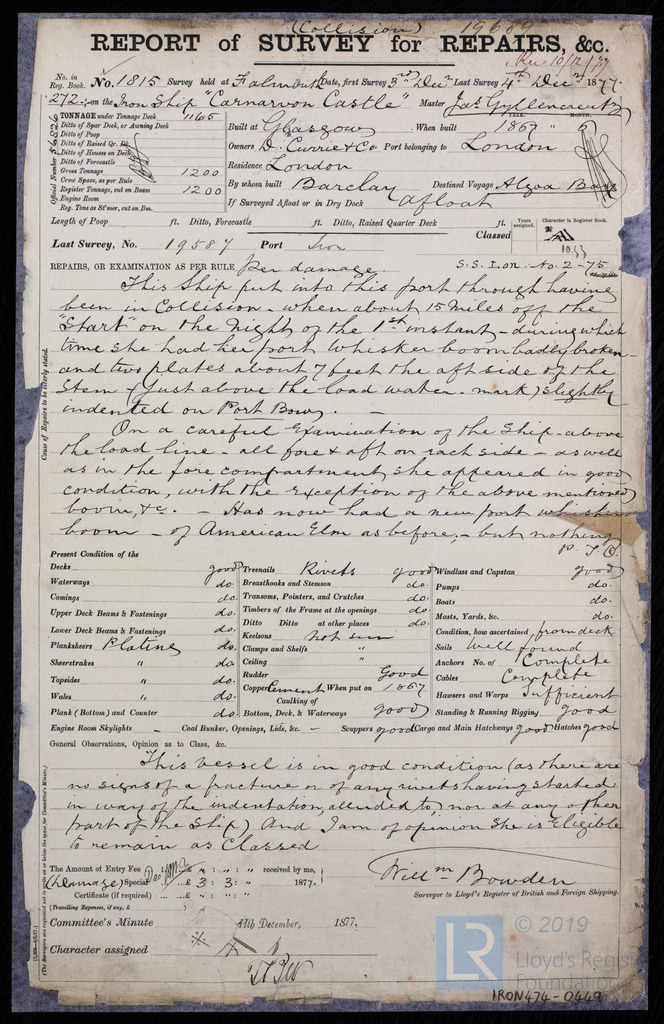 (Collision) 19689
REPORT of SURVEY for REPAIRS, &c.
Rec 10/12/77
No. in Reg. Book. No. 1815 Survey held at Falmouth Date, first Survey 3rd Decr Last Survey 4th Decr 1877.
272. on the Iron Ship "Carnarvon Castle" Master Jas Gyllencreutz
TONNAGE under Tonnage Deck 1165
Ditto of Spar Deck, or Awning Deck
Ditto of Poop
Ditto of Raised Qr. Dk.
Ditto of Houses on Deck
Ditto of Forecastle
Gross Tonnage 1200
Crew Space, as per Rule
Register Tonnage, cut on Beam 1200
Engine Room
Reg. Tons as St'mer, cut on Bm.
Official Number 56826
YEAR. MONTH.
Built at Glasgow When built 1867 " 5
Owners D. Currie & Co Port belonging to London
Residence London
By whom built Barclay Destined Voyage Algoa Bay
If Surveyed Afloat or in Dry Dock afloat
Length of Poop ft. Ditto, Forecastle ft. Ditto, Raised Quarter Deck ft.
Years assigned. Character in Register Book.
Classed A1
Last Survey, No. 19587 Port Lon
S.S. Lon. No. 2-75
REPAIRS, OR EXAMINATION AS PER RULE, Per damage
Cause of Repairs to be clearly stated.
This Ship put into this port through having
been in Collision - when about 15 miles off the
"Start" on the night of the 1st instant - during which
time she had her port whisker boom badly broken -
and two plates about 7 feet the aft side of the
Stem (just above the load water-mark) slightly
indented on Port Bow. -
On a careful Examination of the Ship - above
the load line - all fore & aft on each side - as well
as in the fore compartment, she appeared in good
condition, with the exception of the above mentioned
boom, &c. - Has now had a new port whisker
boom - of American Elm as before, - but nothing
P.T.O.
Present Condition of the
Decks good
Waterways do.
Comings do.
Upper Deck Beams & Fastenings do.
Lower Deck Beams & Fastenings do.
Planksheers Plating do.
Sheerstrakes " do
Topsides " do.
Wales " do.
Plank (Bottom) and Counter do.
Treenails Rivets good
Breasthooks and Stemson do.
Transoms, Pointers, and Crutches do.
Timbers of the Frame at the openings do.
Ditto Ditto at other places do.
Keelsons not seen
Clamps and Shelfs "
Ceiling "
Rudder Good
Copper Cement When put on 1867
Caulking of
Bottom, Deck, & Waterways good
Windlass and Capstan good
Pumps do.
Boats do.
Masts, Yards, &c. do.
Condition, how ascertained from deck
Sails Well found
Anchors No. of Complete
Cables Complete
Hawsers and Warps Sufficient
Standing & Running Rigging Good
Engine Room Skylights - Coal Bunker, Openings, Lids, &c. - Scuppers good Cargo and Main Hatchways good Hatches good
General Observations, Opinion as to Class, &c.
This vessel is in good condition (as there are
no signs of a fracture or of any rivets having started
in way of the indentation, alluded to, nor at any other
part of the Ship) And I am of opinion She is Eligible
to remain as Classed
The Amount of Entry Fee £ " : " : " received by me,
(Damage) Special £ 3 : 3 : " 1877.
Certificate (if required) £ " : " : "
(Travelling Expenses, if any, £ )
Willm Bowden
Surveyor to Lloyd's Register of British and Foreign Shipping.
Committee's Minute 11th December, 1877.
Character assigned
(The Surveyors are requested not to write on or below the space for Committee's Minute.)
© 2019
LR
Lloyd's Regis
Foundation
IRON474-0449